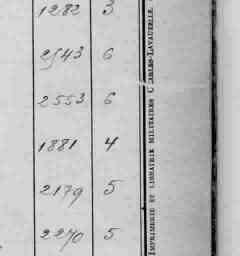 1282 3
2543 6
2553 6
1881 4
2179 5
2270 5
IMPRIMERIE ET LIBRAIRIE MILITAIRES CHARLES-LAVAUZELLE